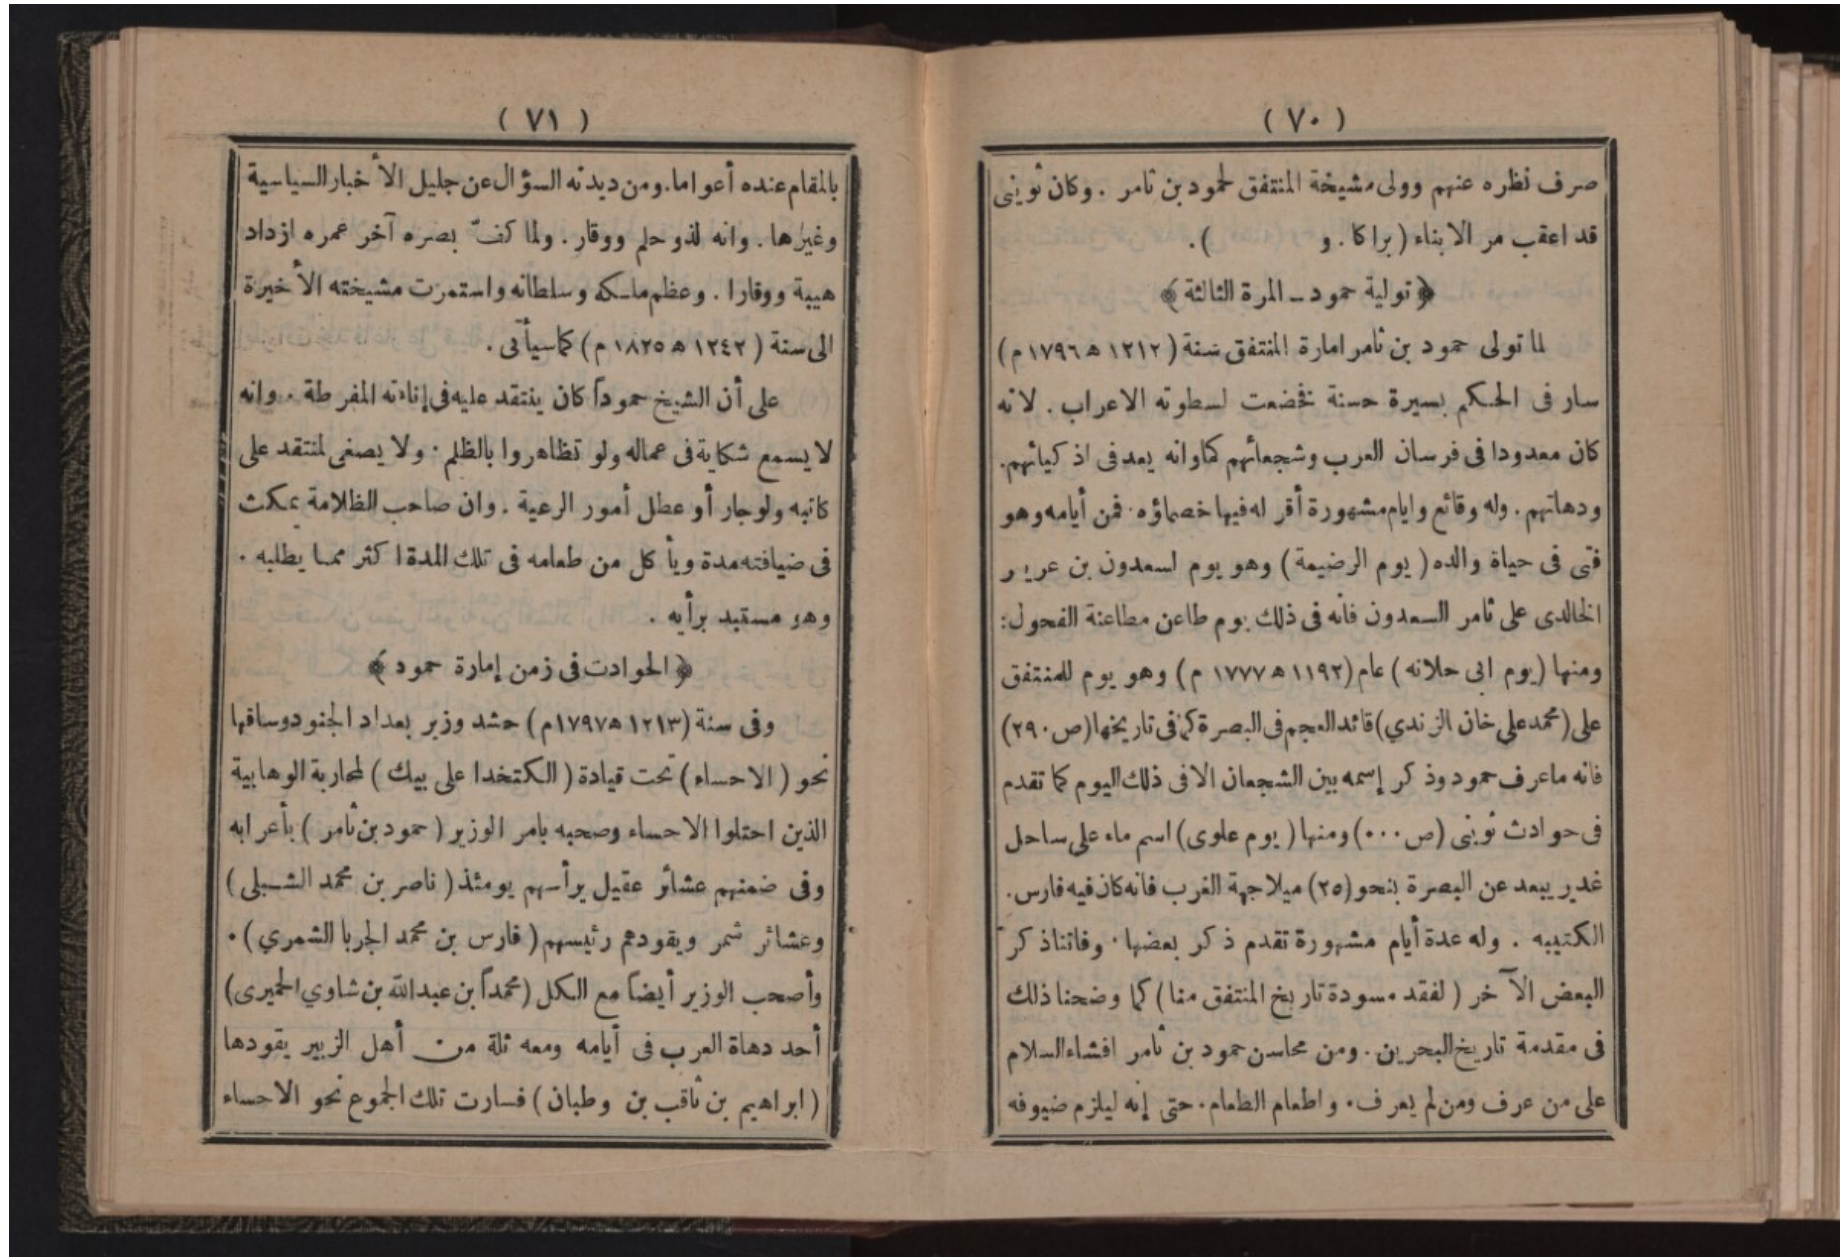 ( ٧٠ )
صرف نظره عنهم وولى مشيخة المنتفق لحمود بن ثامر . وكان ثويني
قد اعقب مر الابناء ( براكا . و ) .
﴿ تولية حمود ــ المرة الثالثة ﴾
لما تولى حمود بن ثامر امارة المنتفق سنة ( ١٢١٢ ه ١٧٩٦ م )
سار فى الحكم بسيرة حسنة فخضعت لسطوته الاعراب . لانه
كان معدودا فى فرسان العرب وشجعانهم كما وانه يعد فى اذ كيائهم.
ودهاتهم . وله وقائع وايام مشهورة أقر له فيها خصماؤه . فمن أيامه وهو
فتى فى حياة والده ( يوم الرضيمة ) وهو يوم لسعدون بن عرير
الخالدى على ثامر السعدون فانه فى ذلك يوم طاعن مطاعنة الفحول :
ومنها ( يوم ابى حلانه ) عام ( ١١٩٢ ه ١٧٧٧ م ) وهو يوم للمنتفق
على ( محمد علي خان الزندي ) قائد العجم فى البصرة كما فى تاريخها ( ص ٢٩٠ )
فانه ما عرف حمود وذ كر إسمه بين الشجعان الا فى ذلك اليوم كما تقدم
فى حوادث ثوينى ( ص ٠٠٠ ) ومنها ( يوم علوى ) اسم ماء على ساحل
غدير يبعد عن البصرة بنحو ( ٢٥ ) ميلا جهة الغرب فانه كان فيه فارس .
الكتيبه . وله عدة أيام مشهورة تقدم ذ كر بعضها . وفاتنا ذ كر
البعض الآ خر ( لفقد مسودة تاريخ المنتفق منا ) كما وضحنا ذلك
فى مقدمة تاريخ البحرين . ومن محاسن حمود بن ثامر افشاء السلام
على من عرف ومن لم يعرف . واطعام الطعام . حتى إنه ليلزم ضيوفه
( ٧١ )
بالمقام عنده أعواما . ومن ديدنه السؤال عن جليل الأ خبار السياسية
وغيرها . وانه لذو حلم ووقار . ولما كفّ بصره آخر عمره ازداد
هيبة ووقارا . وعظم ملكه وسلطانه واستمرت مشيخته الأ خيرة
الى سنة ( ١٢٤٢ ه ١٨٢٥ م ) كما سيأتى .
على أن الشيخ حموداً كان ينتقد عليه فى إناءته المفرطة . وانه
لا يسمع شكاية فى عماله ولو تظاهروا بالظلم . ولا يصغى لمنتقد على
كاتبه ولو جار أو عطل أمور الرعية . وان صاحب الظلامة يمكث
فى ضيافته مدة ويأ كل من طعامه فى تلك المدة ا كثر مما يطلبه .
وهو مستبد برأيه .
﴿ الحوادث فى زمن إمارة حمود ﴾
وفى سنة ( ١٢١٣ ه ١٧٩٧ م ) حشد وزير بغداد الجنود وساقها
نحو ( الاحساء ) تحت قيادة ( الكتخدا على بيك ) لمحاربة الوهابية
الذين احتلوا الاحساء وصحبه بامر الوزير ( حمود بن ثامر ) بأعرابه
وفى ضمنهم عشائر عقيل يرأسهم يومئذ ( ناصر بن محمد الشبلى )
وعشائر شمر ويقودهم رئيسهم ( فارس بن محمد الجربا الشمري ) .
وأصحب الوزير أيضاً مع الكل ( محمداً بن عبدالله بن شاوي الحميرى )
أحد دهاة العرب فى أيامه ومعه ثلة من أهل الزبير يقودها
( ابراهيم بن ثاقب بن وطبان ) فسارت تلك الجموع نحو الاحساء